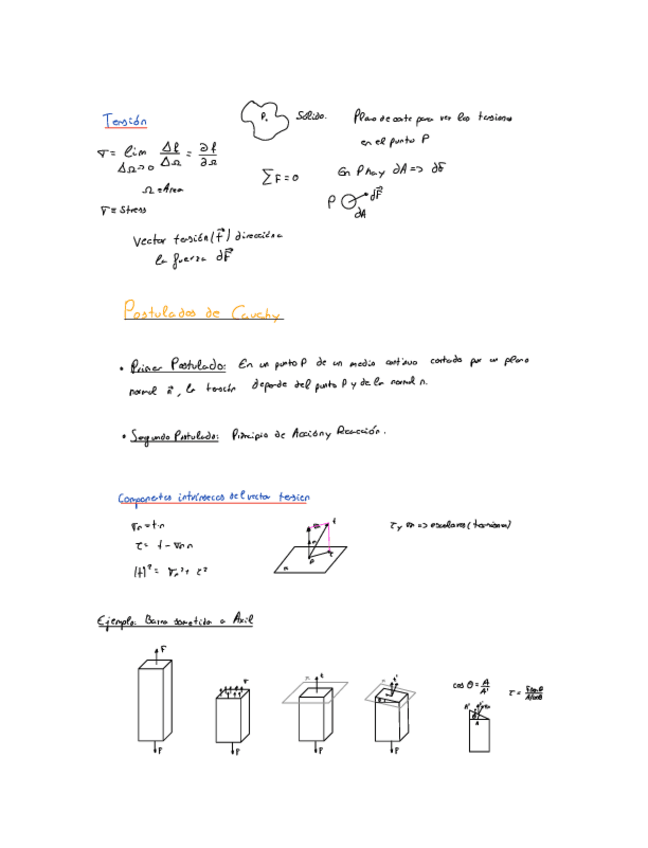 Tensión
P.
Sólido.
Plano de corte para ver las tensiones
en el punto P
σ = lim Δf/ΔΩ = ∂f/∂Ω
ΔΩ→0
Ω = Area
Σ F = 0
En P hay dA => dF
P
dF
dA
σ = Stress
Vector tensión (t) dirección a
la fuerza dF
Postulados de Cauchy
• Primer Postulado: En un punto P de un medio continuo cortado por un plano
normal n, la tensión depende del punto P y de la normal n.
• Segundo Postulado: Principio de Acción y Reacción.
Componentes intrínsecas del vector tensión
σn = t·n
τ = t - σn n
|t|² = σn² + τ²
t
τ
P
τ y σn => escalares (tensiones)
Ejemplo: Barra sometida a Axil
F
σ
t
F
F
F
F
cos θ = A/A'
A'
A